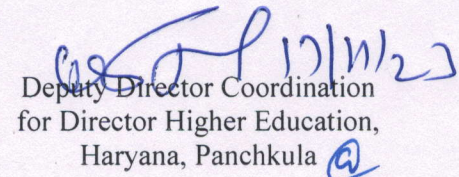 17/11/23
Deputy Director Coordination
for Director Higher Education,
Haryana, Panchkula